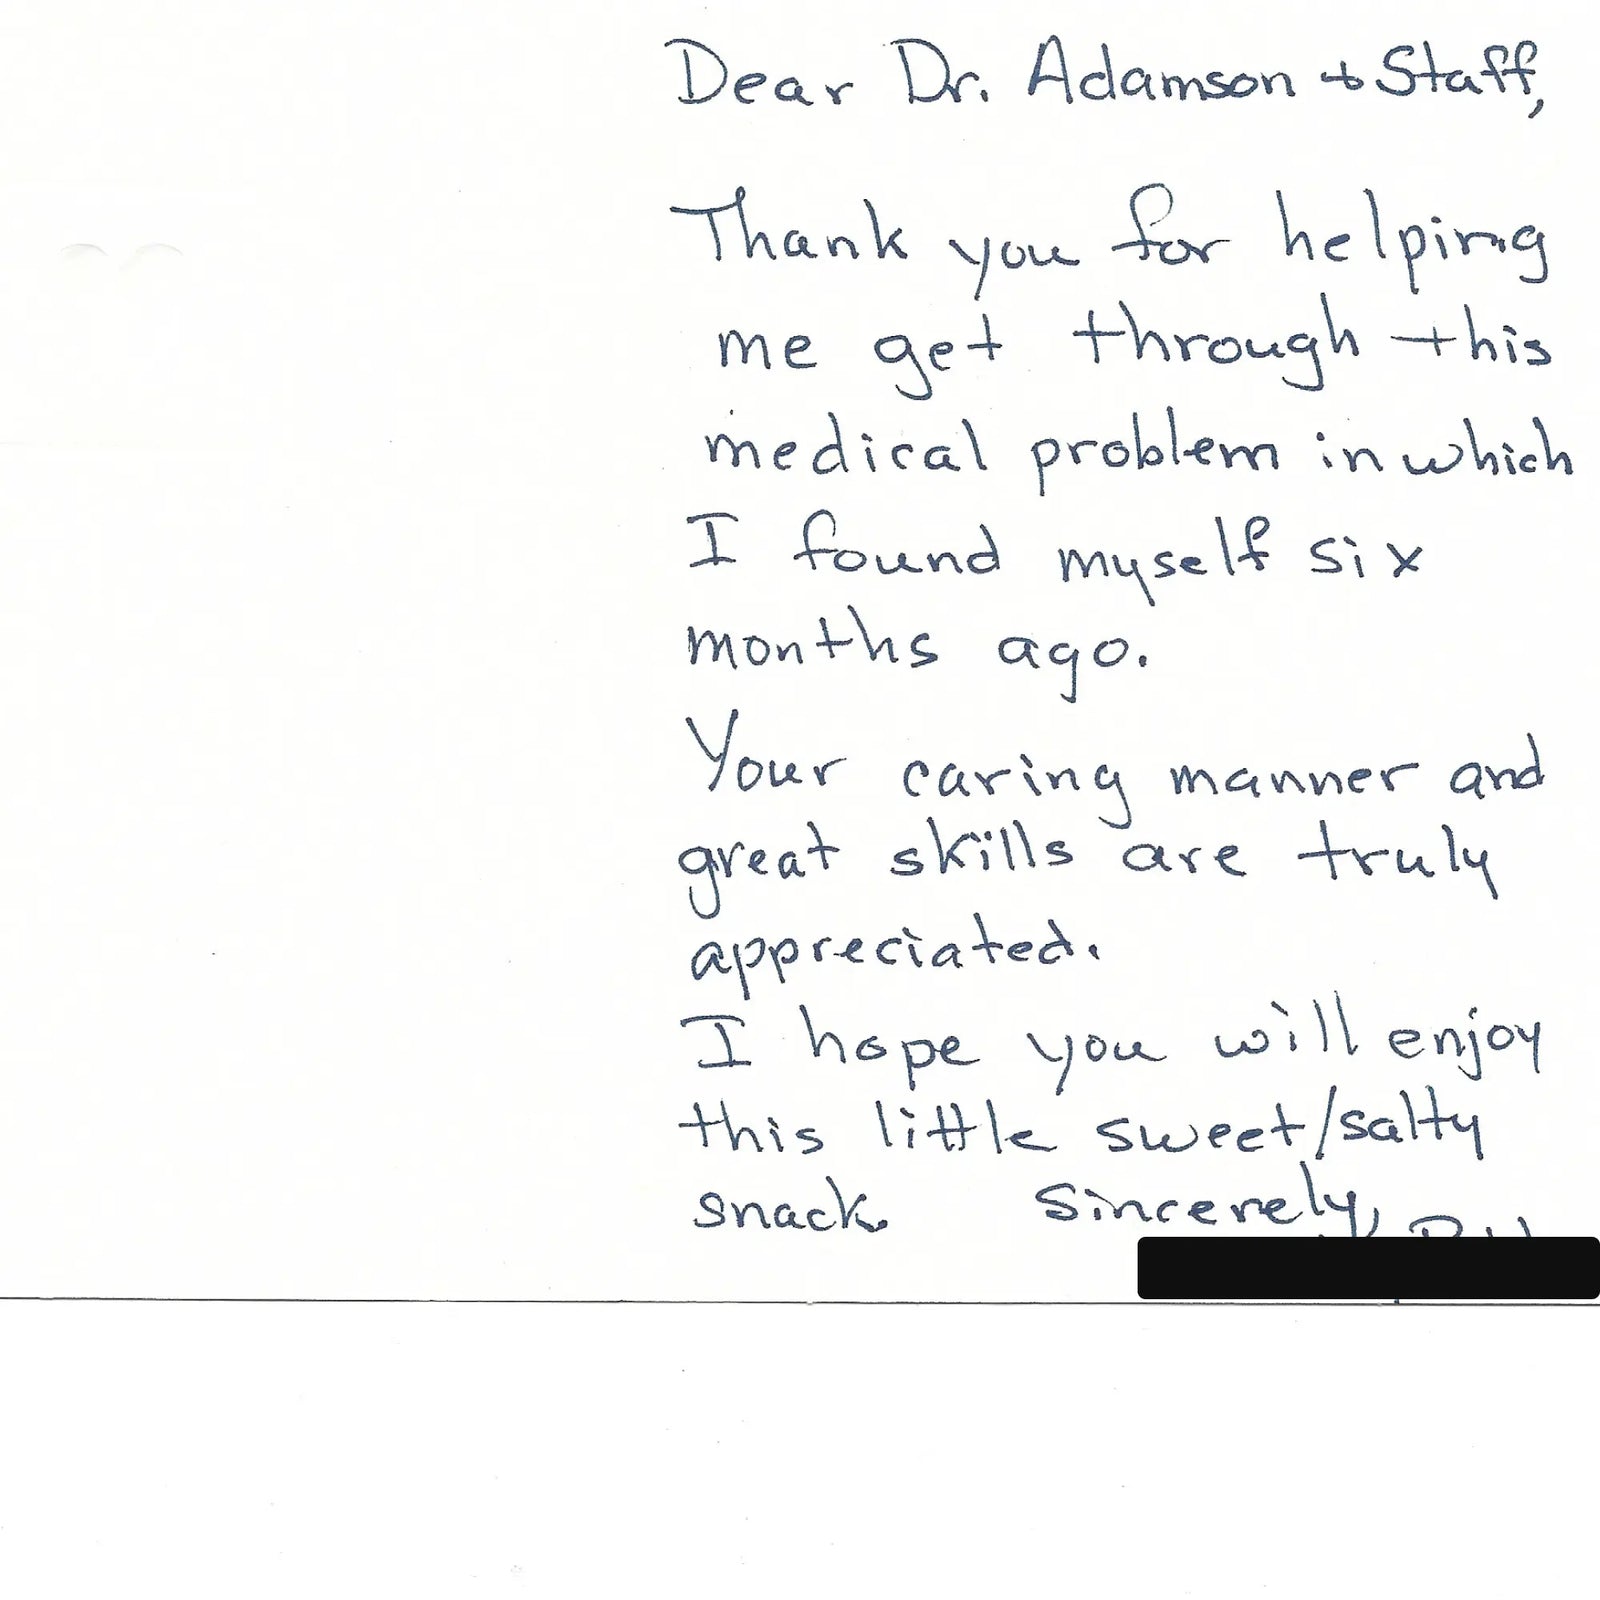 Dear Dr. Adamson + Staff,
Thank you for helping
me get through this
medical problem in which
I found myself six
months ago.
Your caring manner and
great skills are truly
appreciated.
I hope you will enjoy
this little sweet/salty
snack. Sincerely,